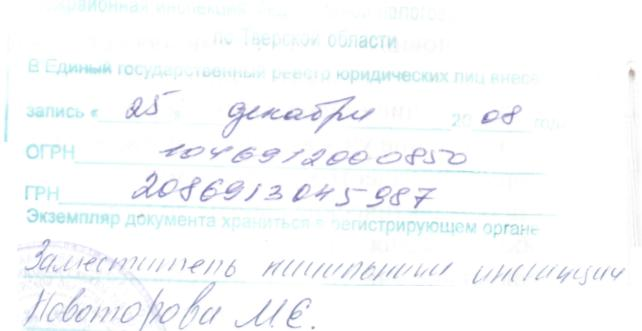 районная инспекция
по Тверской области
В Единый государственный реестр юридических лиц внесе
запись « 25 » декабря 2008 года
ОГРН 1046912000850
ГРН 2086913045987
Экземпляр документа храниться в регистрирующем органе
Заместитель начальника инспекции
Новоторова М.Е.